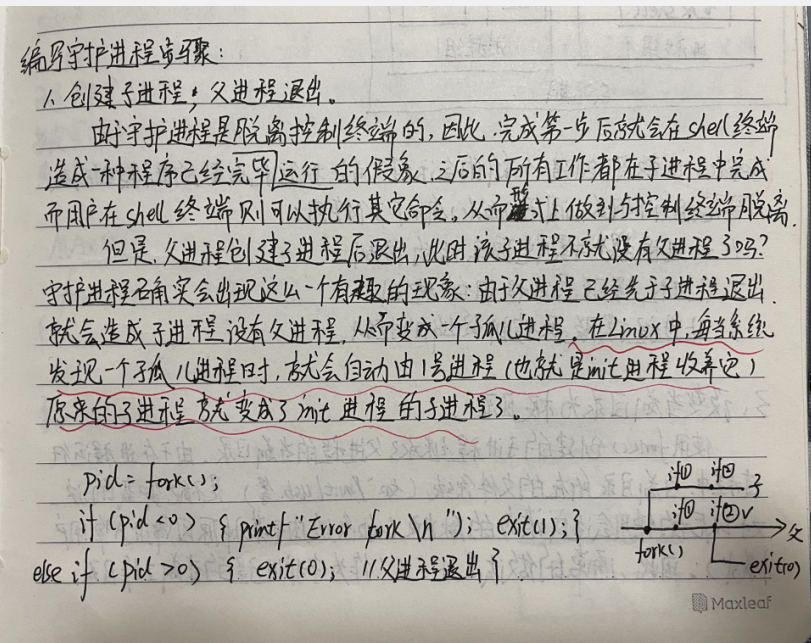 编写守护进程步骤:
1、创建子进程,父进程退出。
由于守护进程是脱离控制终端的,因此,完成第一步后就会在shell终端
造成一种程序已经完毕运行的假象.之后的所有工作都在子进程中完成
而用户在shell终端则可以执行其它命令。从而形式上做到与控制终端脱离.
但是,父进程创建子进程后退出,此时该子进程不就没有父进程了吗?
守护进程确实会出现这么一个有趣的现象:由于父进程已经先于子进程退出.
就会造成子进程没有父进程,从而变成一个孤儿进程。在Linux中,每当系统
发现一个孤儿进程时,就会自动由1号进程(也就是init进程收养它)
原来的子进程就变成了init进程的子进程了。
pid = fork();
if (pid<0) { printf("Error fork \n"); exit(1); }
else if (pid>0) { exit(0); //父进程退出 }
if① if② 子
if① if②√ 父
fork()
exit(0)
Maxleaf